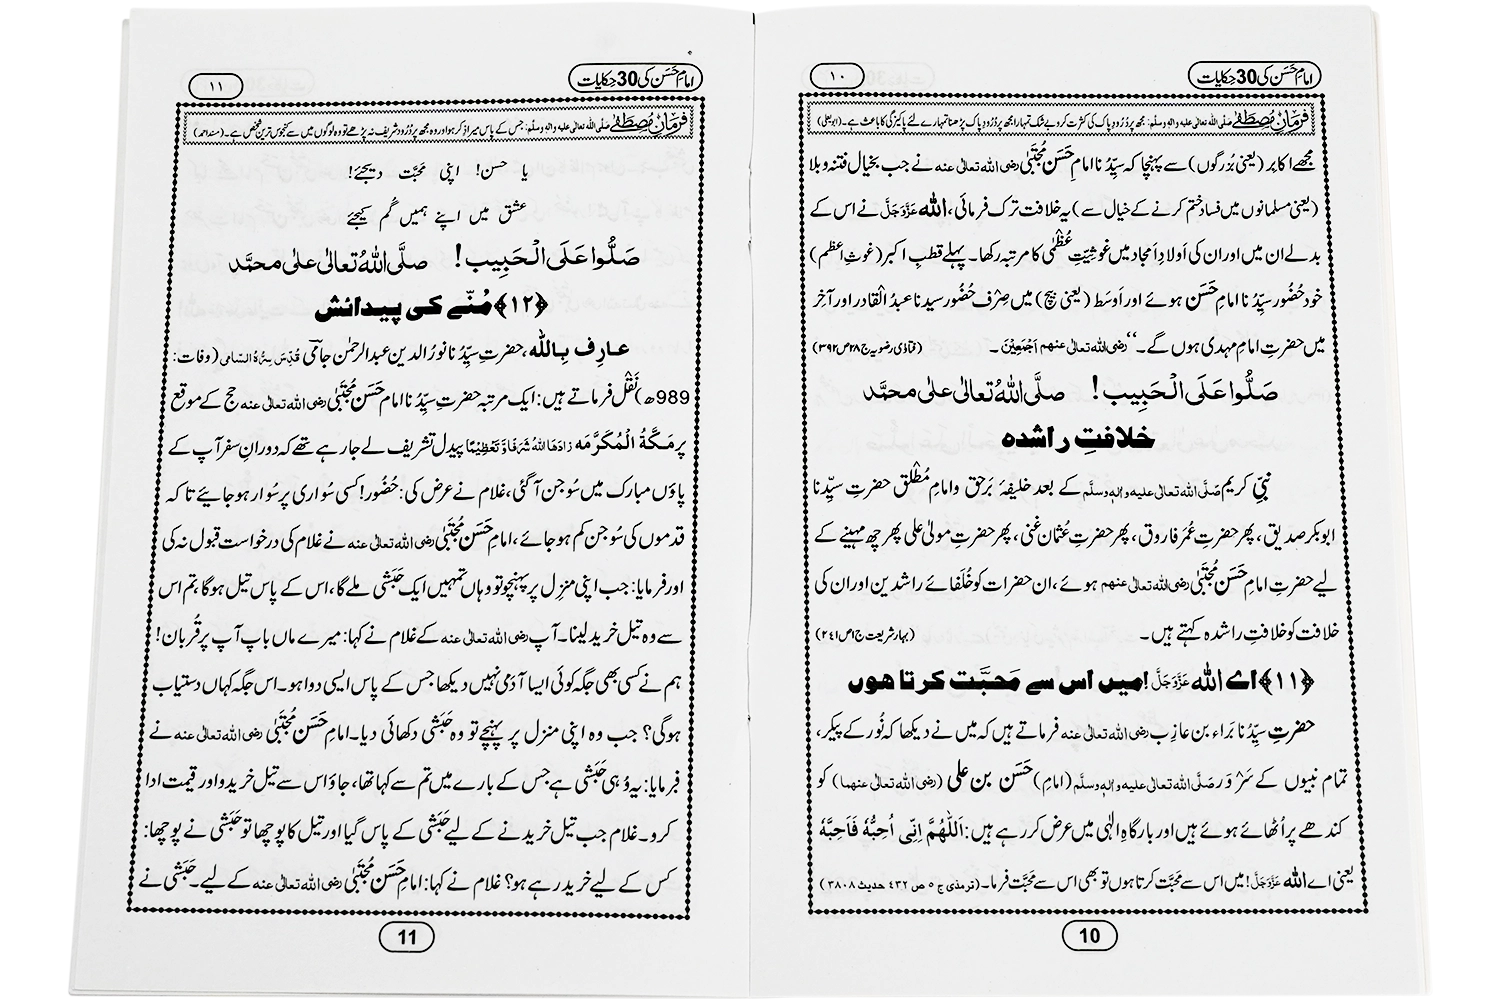 امامِ حَسَن کی 30 حِکایات
۱۰
فرمانِ مُصطَفٰے صلَّی اللہ تعالٰی علیہ واٰلہٖ وسلَّم: مجھ پر دُرُودِ پاک کی کثرت کرو بے شک تمہارا مجھ پر دُرُودِ پاک پڑھنا تمہارے لئے پاکیزگی کا باعث ہے۔ (ابو یعلیٰ)
مجھے اکابِر (یعنی بُزرگوں) سے پہنچا کہ سیِّدُنا امامِ حَسَن مُجتَبٰی رضی اللہ تعالٰی عنہ نے جب بخیال فتنہ و بلا
(یعنی مسلمانوں میں فساد ختم کرنے کے خیال سے) یہ خلافت ترک فرمائی، اللہ عَزَّوَجَلَّ نے اس کے
بدلے ان میں اور ان کی اَولادِ اَمجاد میں غوثِیَّتِ عُظْمٰی کا مرتبہ رکھا۔ پہلے قطبِ اکبر (غوثِ اعظم)
خود حُضُور سیِّدُنا امامِ حَسَن ہوئے اور اَوسَط (یعنی بیچ) میں صِرْف حُضُور سیدنا عبدُ القادر اور آخِر
میں حضرتِ امامِ مہدی ہوں گے۔“ رضی اللہ تعالٰی عنہم اَجْمَعِیْنَ۔ (فتاوٰی رضویہ ج۲۸ ص۳۹۲)
صَلُّوا عَلَی الْحَبِیب! صلَّی اللہُ تعالٰی علٰی محمَّد
خلافتِ راشدہ
نبیِّ کریم صَلَّی اللہ تعالٰی علیہ واٰلہٖ وسلَّم کے بعد خلیفۂ بَرحق و امامِ مُطْلَق حضرتِ سیِّدُنا
ابوبکر صدیق، پھر حضرتِ عُمَر فاروق، پھر حضرتِ عُثمان غنی، پھر حضرتِ مولیٰ علی پھر چھ مہینے کے
لیے حضرتِ امامِ حَسَن مُجتَبٰی رضی اللہ تعالٰی عنہم ہوئے، ان حضرات کو خُلَفائے راشدین اور ان کی
خلافت کو خلافتِ راشدہ کہتے ہیں۔ (بہارِ شریعت ج۱ ص۲۴۱)
﴿۱۱﴾ اے اللہ عَزَّوَجَلَّ! میں اس سے مَحَبَّت کرتا ہوں
حضرتِ سیِّدُنا بَراء بن عازِب رضی اللہ تعالٰی عنہ فرماتے ہیں کہ میں نے دیکھا کہ نُور کے پیکر،
تمام نبیوں کے سَرْوَر صَلَّی اللہ تعالٰی علیہ واٰلہٖ وسلَّم (امام) حَسَن بن علی (رضی اللہ تعالٰی عنہما) کو
کندھے پر اُٹھائے ہوئے ہیں اور بارگاہِ الٰہی میں عرض کر رہے ہیں: اَللّٰھُمَّ اِنِّی اُحِبُّہٗ فَاَحِبَّہٗ
یعنی اے اللہ عَزَّوَجَلَّ! میں اس سے مَحَبَّت کرتا ہوں تو بھی اس سے مَحَبَّت فرما۔ (ترمذی ج ۵ ص ۴۳۲ حدیث ۳۸۰۸)
10
امامِ حَسَن کی 30 حِکایات
۱۱
فرمانِ مُصطَفٰے صلَّی اللہ تعالٰی علیہ واٰلہٖ وسلَّم: جس کے پاس میرا ذکر ہو اور وہ مجھ پر دُرُود شریف نہ پڑھے تو وہ لوگوں میں سے کنجوس ترین شخص ہے۔ (مسند احمد)
یا حسن! اپنی مَحَبَّت دیجئے!
عشق میں اپنے ہمیں گُم کیجئے
صَلُّوا عَلَی الْحَبِیب! صلَّی اللہُ تعالٰی علٰی محمَّد
﴿۱۲﴾ مُنّے کی پیدائش
عارِف بِاللہ، حضرتِ سیِّدُنا نورُ الدین عبدالرحمٰن جامی قُدِّسَ سِرُّہُ السَّامِی (وفات:
989ھ) نَقْل فرماتے ہیں: ایک مرتبہ حضرتِ سیِّدُنا امامِ حَسَن مُجتَبٰی رضی اللہ تعالٰی عنہ حج کے موقع
پر مَکَّۃُ الْمُکَرَّمَہ زَادَھَا اللہُ شَرَفًا وَّ تَعْظِیْمًا پیدل تشریف لے جا رہے تھے کہ دورانِ سفر آپ کے
پاؤں مبارک میں سُوجن آگئی، غلام نے عرض کی: حُضُور! کسی سُواری پر سُوار ہو جائیے تا کہ
قدموں کی سُوجن کم ہو جائے، امامِ حَسَن مُجتَبٰی رضی اللہ تعالٰی عنہ نے غلام کی درخواست قبول نہ کی
اور فرمایا: جب اپنی منزِل پر پہنچو تو وہاں تمہیں ایک حَبَشی ملے گا، اس کے پاس تیل ہوگا، تم اس
سے وہ تیل خرید لینا۔ آپ رضی اللہ تعالٰی عنہ کے غلام نے کہا: میرے ماں باپ آپ پر قُربان!
ہم نے کسی بھی جگہ کوئی ایسا آدَمی نہیں دیکھا جس کے پاس ایسی دوا ہو۔ اس جگہ کہاں دستیاب
ہوگی؟ جب وہ اپنی منزل پر پہنچے تو وہ حَبَشی دکھائی دیا۔ امامِ حَسَن مُجتَبٰی رضی اللہ تعالٰی عنہ نے
فرمایا: یہ وُہی حَبَشی ہے جس کے بارے میں تم سے کہا تھا، جاؤ اس سے تیل خریدو اور قیمت ادا
کرو۔ غلام جب تیل خریدنے کے لیے حَبَشی کے پاس گیا اور تیل کا پوچھا تو حَبَشی نے پوچھا:
کس کے لیے خرید رہے ہو؟ غلام نے کہا: امامِ حَسَن مُجتَبٰی رضی اللہ تعالٰی عنہ کے لیے۔ حَبَشی نے
11